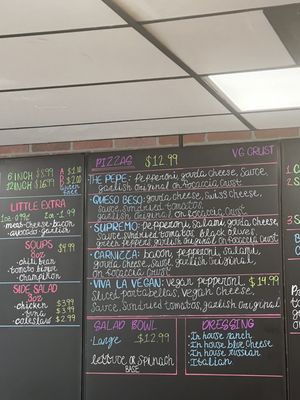 6 INCH $8.99
12 INCH $16.99
A $1.50
B $2.00
Gluten
Free
LITTLE EXTRA
1oz .99¢ 2oz -1.99
-meat -cheese -bacon
-avocado -garlish
SOUPS $4.99
8oz
-chili bean
-tomato bisque
-champinon
SIDE SALAD
8oz
-chicken $3.99
-tuna $3.99
-coleslaw $2.99
PIZZAS $12.99 VG CRUST
THE PEPE: Pepperoni, gouda cheese, Sauce,
garlish original on focaccia Crust
QUESO BESO: gouda cheese, Swiss cheese,
Sauce, Sundried tomatoes
garlish original on focaccia Crust
SUPREMO: Pepperoni, Salami, gouda Cheese,
Sauce, Sundried tomatoes, Black olives,
Green Peppers, garlish original on focaccia Crust
CARNIZZA: bacon, pepperoni, Salami,
gouda Cheese, Sauce, garlish original,
on focaccia Crust
VIVA LA VEGAN: Vegan Pepperoni, $14.99
Sliced portabellas, Vegan Cheese,
Sauce, Sundried tomatoes, garlish original
SALAD BOWL
-Large $12.99
lettuce or Spinach
BASE
DRESSING
-In house ranch
-In house blue cheese
-In house russian
-Italian